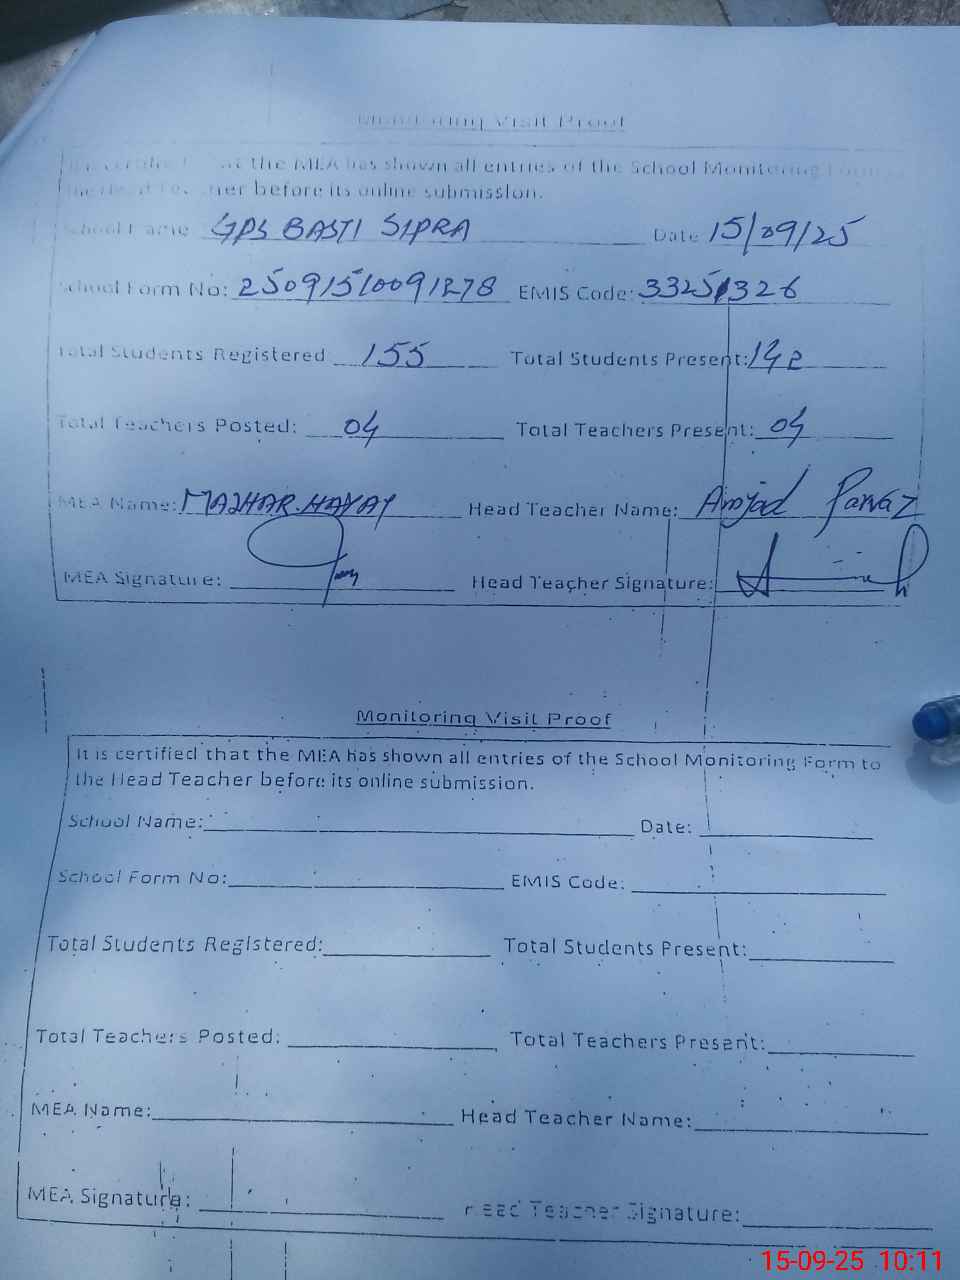 Monitoring Visit Proof
at the MEA has shown all entries of the School Monitoring
the Head Teacher before its online submission.
School Name GPS BASTI SIPRA Date 15/09/25
School Form No: 25091510091278 EMIS Code: 33251326
Total Students Registered 155 Total Students Present: 142
Total Teachers Posted: 04 Total Teachers Present: 04
MEA Name: MAZHAR HAYAT Head Teacher Name: Amjad Parvaz
MEA Signature: Head Teacher Signature:
Monitoring Visit Proof
It is certified that the MEA has shown all entries of the School Monitoring Form to
the Head Teacher before its online submission.
School Name: Date:
School Form No: EMIS Code:
Total Students Registered: Total Students Present:
Total Teachers Posted: Total Teachers Present:
MEA Name: Head Teacher Name:
MEA Signature: Head Teacher Signature:
15-09-25 10:11